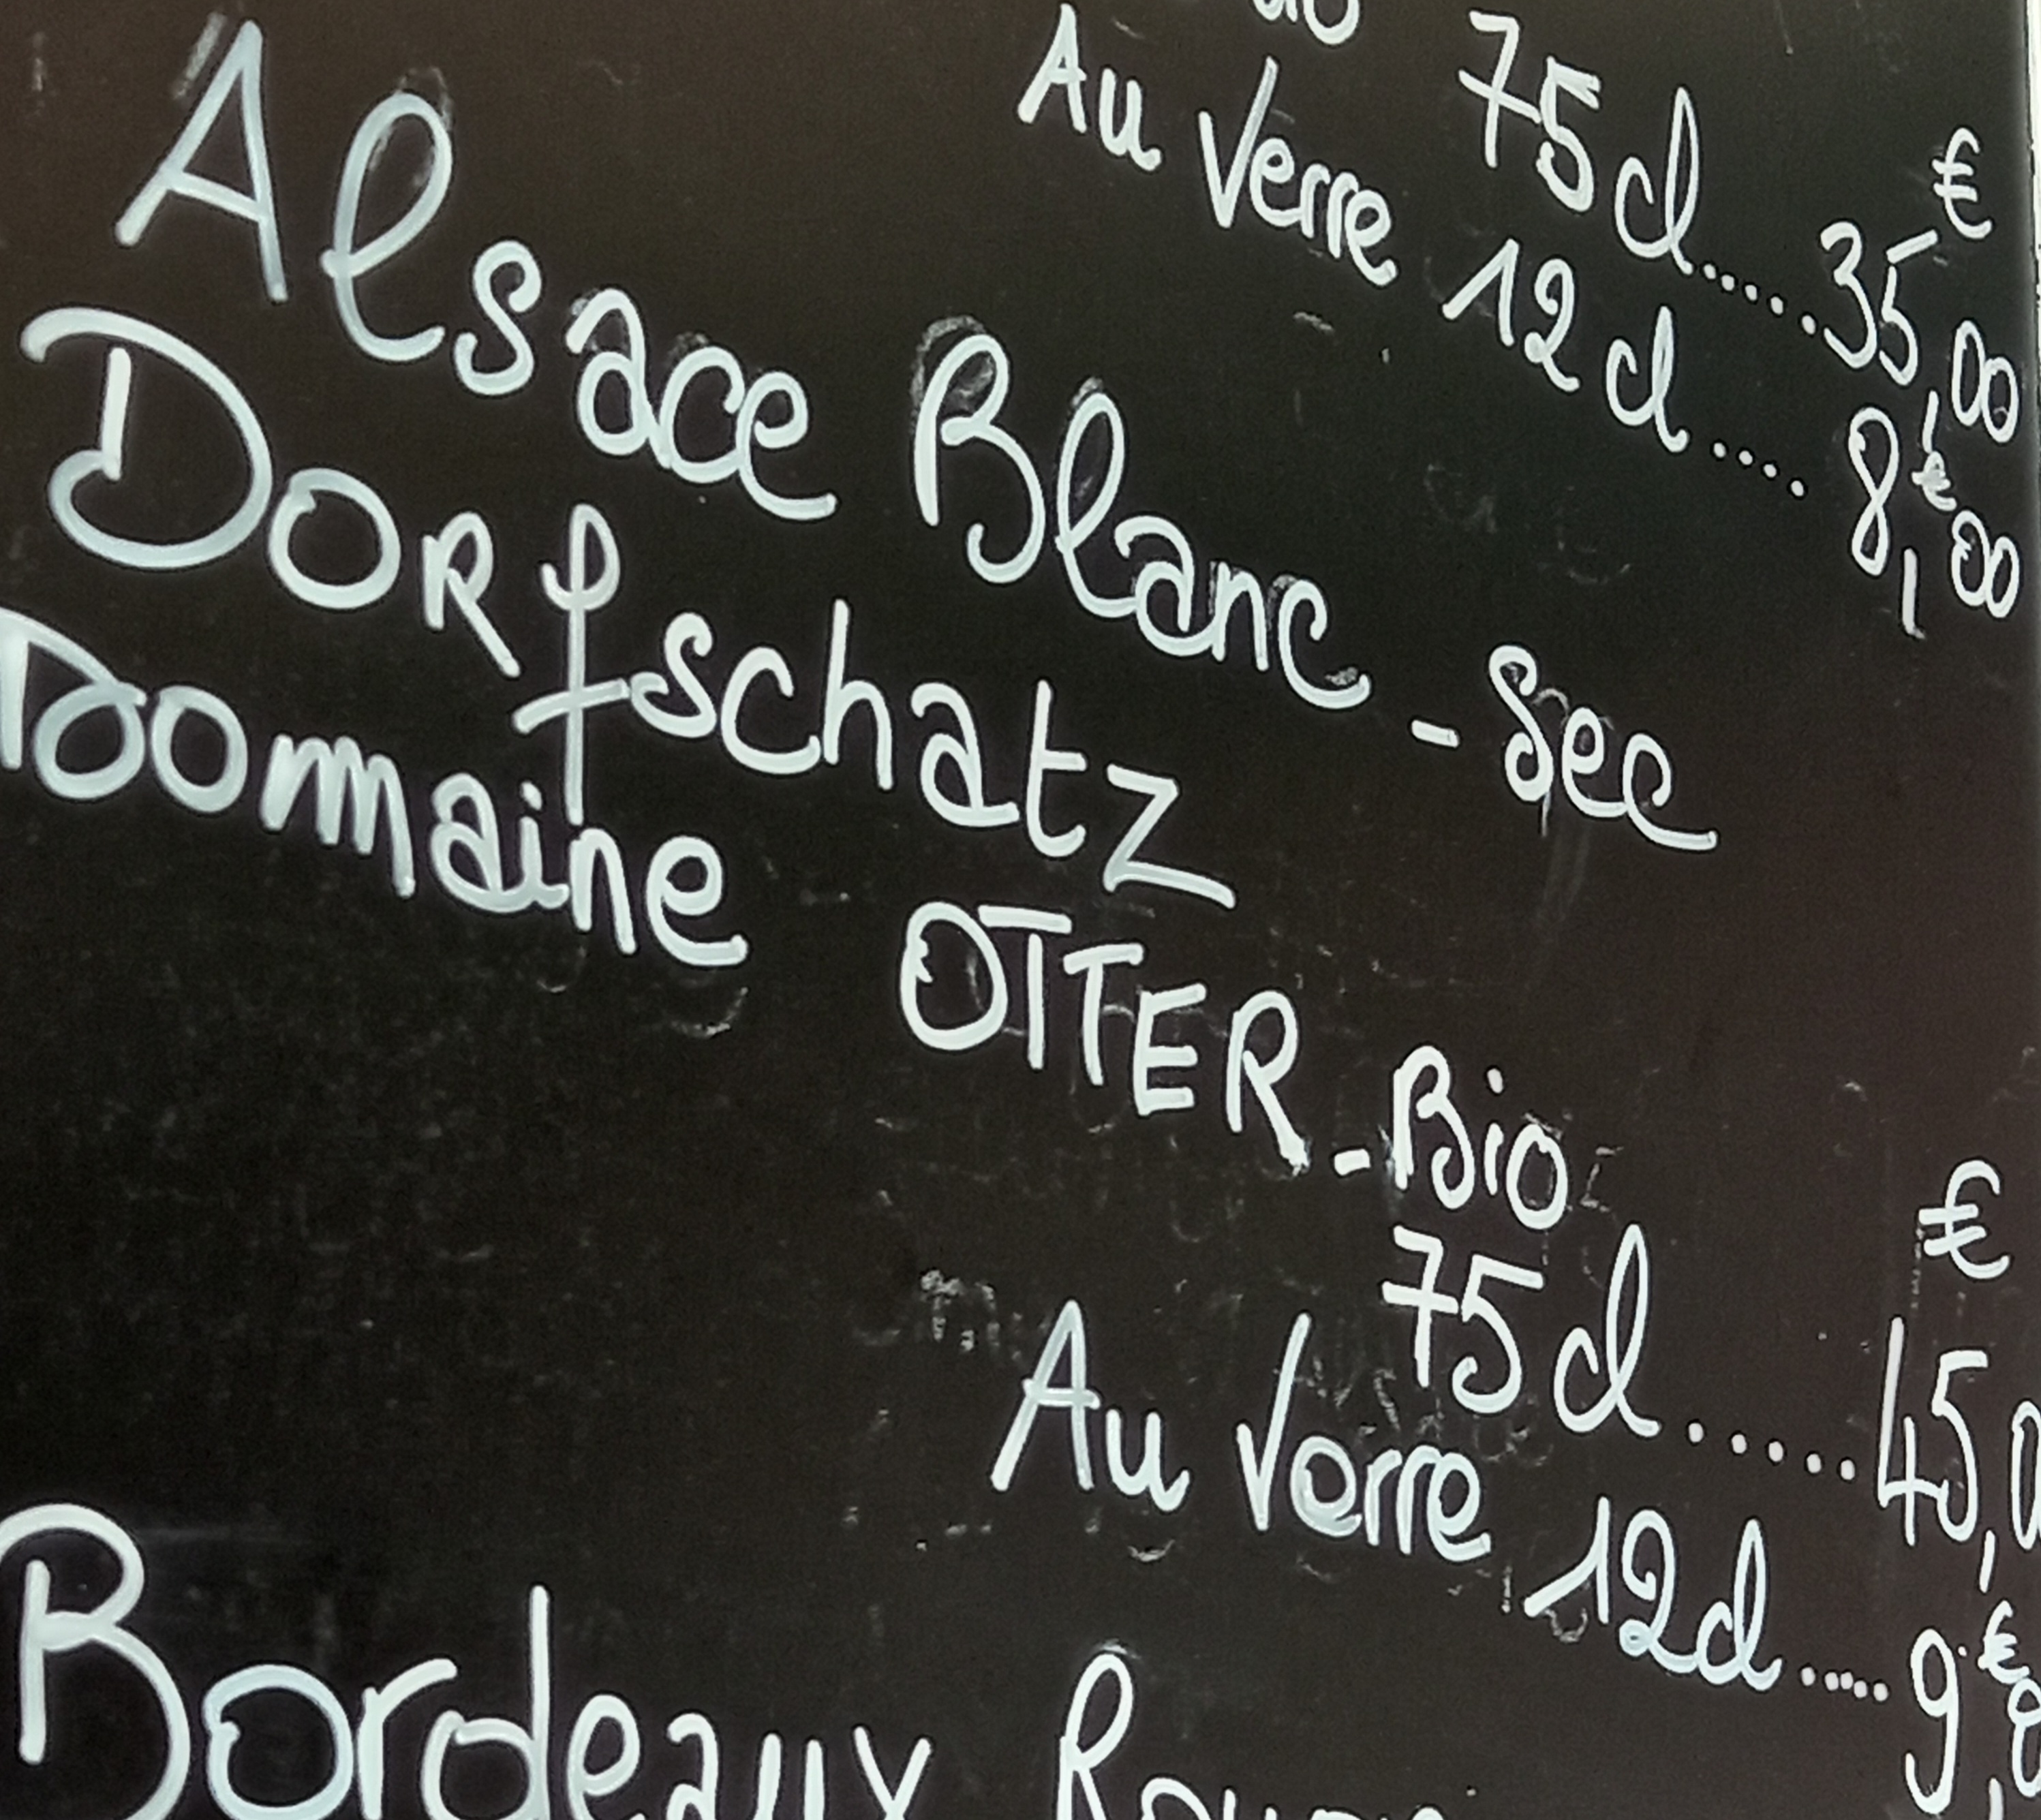 75 cl..... 35,00 €
Au Verre 12 cl.... 8,00 €
Alsace Blanc - Sec
DORfschatz
Domaine OTTER - Bio
75 cl...... 45,0 €
Au Verre 12 cl..... 9,0 €
Bordeaux